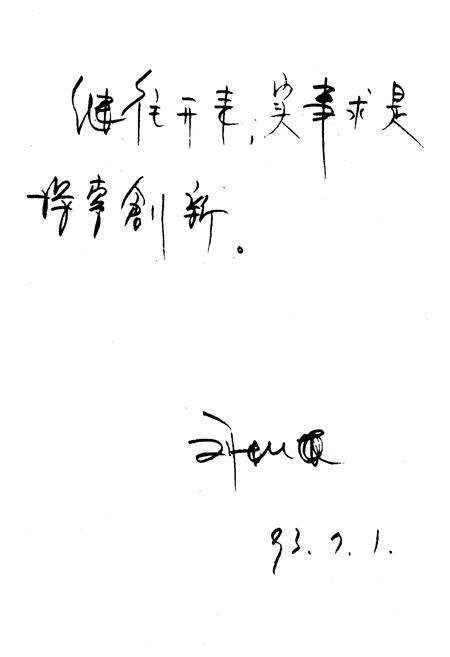 继往开来,实事求是
探索創新。
93.7.1.